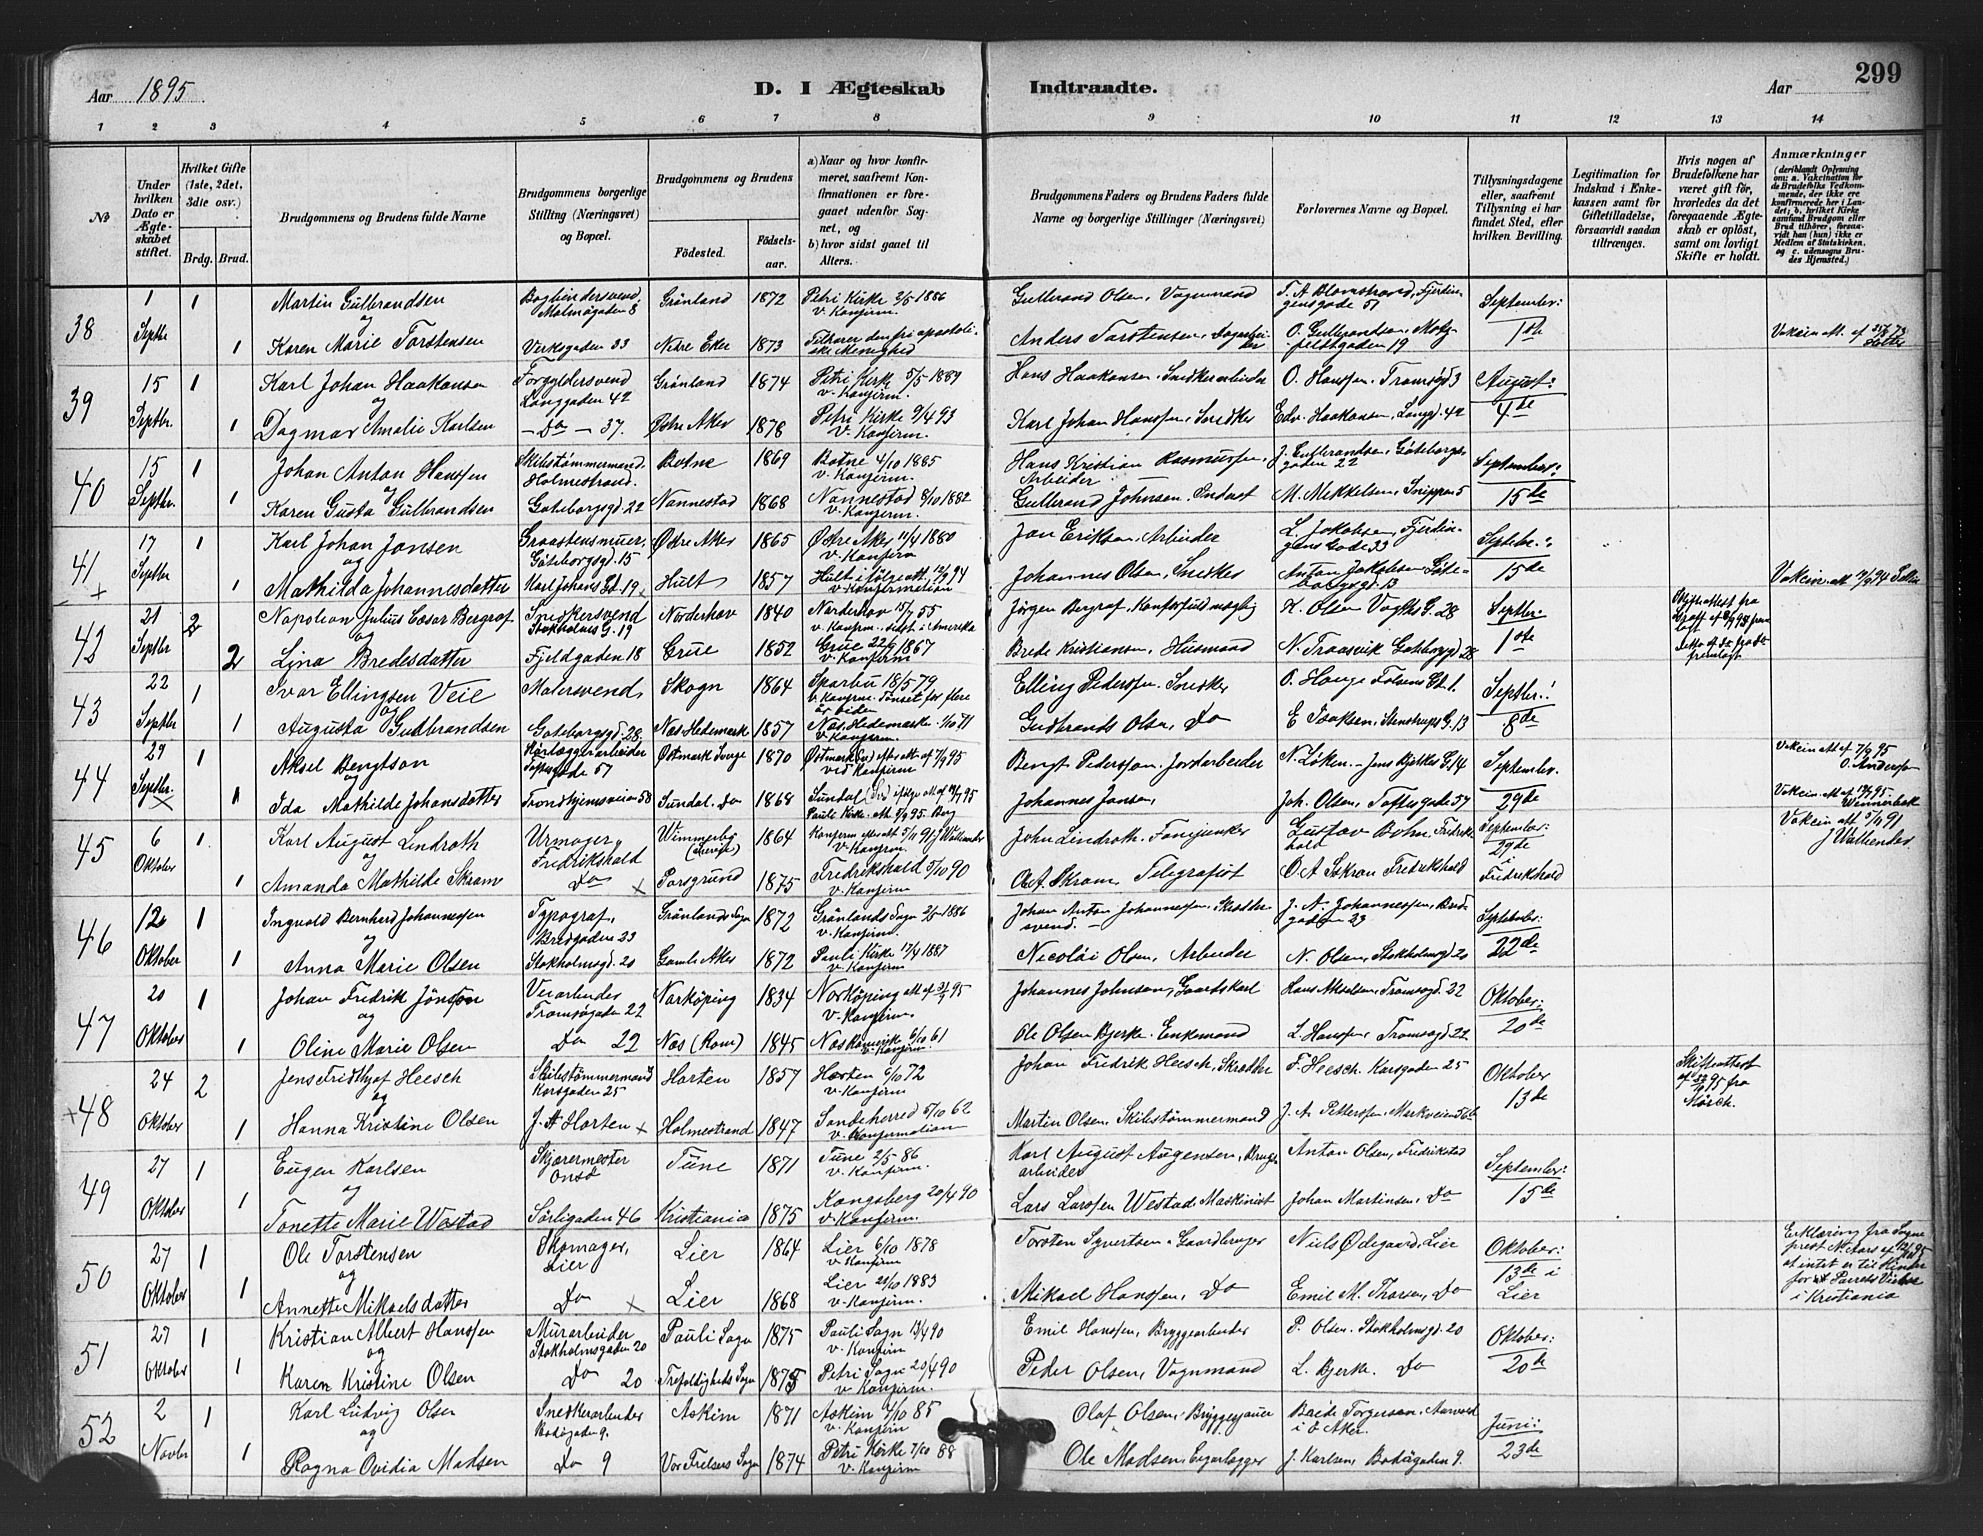 Aar 1895
D. I Ægteskab Indtraadte.
Aar
299
1 2 3 4 5 6 7 8 9 10 11 12 13 14
No
Under hvilken Dato er Ægteskabet stiftet.
Hvilket Gifte (1ste, 2det, 3die osv.)
Brdg. Brud.
Brudgommens og Brudens fulde Navne
Brudgommens borgerlige Stilling (Næringsvei) og Bopæl.
Brudgommens og Brudens
Fødested.
Fødselsaar.
a) Naar og hvor konfirmeret, saafremt Konfirmationen er foregaaet udenfor Sognet, og
b) hvor sidst gaaet til Alters.
Brudgommens Faders og Brudens Faders fulde Navne og borgerlige Stillinger (Næringsvei)
Forlovernes Navne og Bopæl.
Tillysningsdagene eller, saafremt Tillysning ei har fundet Sted, efter hvilken Bevilling.
Legitimation for Indskud i Enkekassen samt for Giftetilladelse, forsaavidt saadan tiltrænges.
Hvis nogen af Brudefolkene har været gift før, hvorledes da det foregaaende Ægteskab er opløst, samt om lovligt Skifte er holdt.
Anmærkninger (deriblandt Oplysning om: a. Vakcination for de Brudefolks Vedkommende, der ikke ere konfirmerede her i Landet; b. hvilket Kirkesamfund Brudgom eller Brud tilhører, forsaavidt han (hun) ikke er Medlem af Statskirken, og c. udensogns Brudes Hjemsted.)
38 1 Septbr 1 Martin Gulbrandsen Bogbindersvend, Malmøgaden 8 Grønland 1872 Petri Kirke 2/5 1886 v. Konfirm. Gulbrand Olsen, Vognmand T. A. Blomstrand, Fjerdingensgade 51 September: 1ste
og
1 Karen Marie Torstensen Verksgaden 33 Nedre Eker 1873 Tilhører den fri apostoliske Menighed Anders Torstensen, O. Gulbrandsen, Motzfeldtsgaden 19
39 15 Septbr. 1 Karl Johan Haakansen Forgyldersvend Langgaden 42 Grønland 1874 Petri Kirke 5/5 1889 v. Konfirm. Hans Haakansen, Snidkerarbeider O. Hansen, Tromsøgd 3 August: 4de
og
1 Dagmar Amalie Karlsen - Do - 37. Østre Aker 1878 Petri Kirke 9/4 93 v. Konfirm. Karl Johan Hansen, Snedker Edv. Haakansen, Langgd. 42
40 15 Septbr. 1 Johan Anton Hansen Skibstømmermand, Holmestrand. Botne 1869 Botne 4/10 1885 v. Konfirm. Hans Kristian Rasmussen, Arbeider J. Gulbrandsen, Göteborgsgaden 22 September: 15de
og
1 Karen Gusta Gulbrandsen Goteborgsgd. 22 Nannestad 1868 Nannestad 8/10 1882 v. Konfirm. Gulbrand Johnsen, Inderst M. Mikkelsen, Snippen 5
41 17 Septbr 1 Karl Johan Jansen Graastensmurer, Göteborgsgd. 15 Østre Aker 1865 Østre Aker 11/4 1880 v. Konfirm Jan Eriksen, Arbeider L. Jakobsen, Fjerdingens Gade 33 Septebr.: 15de
og
1 Mathilda Johannesdatter Karl Johans Gd. 19 Hult 1857 Hult ifølge att. 12/9 94 v. Konfirmation Johannes Olsen, Snedker Anton Jakobsen Göteborgsgd. 13 Vakcin. att.
42 21 Septbr 2 Napoleon Julius Cæsar Bergraf Snedkersvend Stokholms G. 19 Norderhov 1840 Norderhov 15/7 55 v. Konfirm. sidst i Amerika Jørgen Bergraf, H. Olsen Vogts G. 28 Septbr. 1ste
og
2 Lina Bredesdatter Fjeldgaden 18 Grue 1852 Grue 22/9 1867 v. Konfirm Brede Kristiansen, Husmand N. Traasvik Goteborgsgd 28
43 22 Septbr 1 Ivar Ellingsen Veie Malersvend, Skogn 1864 Sparbu 18/5 79 v. Konfirm. Tönset for flere år siden Elling Pedersen, Snedker O. Hauge Falsens Gd. 1. Septbr.: 8de
og
1 Augusta Gulbrandsen Goteborgsgd. 28, Næs Hedemark 1857 Næs, Hedemarken 1/10 71 v. Konfirm. Gudbrands Olsen, Do E. Isaksen, Stenstrups G. 13
44 29 Septbr. 1 Aksel Bengtson Toftesgade 57 Østmark Sverge 1870 Østmark v. Konfirm Bengt Pederson, Jordarbeider N. Løken, Jens Bjelkes G. 14 September. 29de Vakcin att af 7/9 95 O. Anderson
og
1 Ida Mathilde Johansdatter Trondhjemsveien 58 Sundal. Do 1868 Sundal Pauli Kirke Johannes Jansen, Joh. Olsen, Toftesgade 57 Vakcin. att af
45 6 Oktober 1. Karl August Lindroth Urmager, Fredrikshald Wimmerby (Sverige) 1864 v. Konfirm. John Lindroth, Fanejunker Gustav Bohm, Fredrikshald September: 29de i Fredrikshald Vakcin att. 5/11 91 J Wallender.
og
1 Amanda Mathilde Skram Do Porsgrund 1875 Fredrikshald 5/10 90 v. Konfirm O. A. Skram, Telegrafist O. A. Skram Fredrikshald
46 12 Oktober 1 Ingvald Bernhard Johannessen Typograf, Bredgaden 23 Grønlands Sogn 1872 Grønlands Sogn 2/5 1886 v. Konfirm. Johan Anton Johannessen, Skræddersvend. J. A. Johannessen, Bredgaden 23 September: 22de
og
1 Anna Marie Olsen Stokholmsgd. 20 Gamle Aker 1872 Pauli Kirke 17/4 1887 v. Konfirm Nicolai Olsen, Arbeider N. Olsen, Stokholmsgd 20
47 20 Oktober 1 Johan Fredrik Jönsson Veiarbeider Tromsøgaden 22 Norköping 1834 Norköping att af 31/5 95 v. Konfirm. Johannes Johnson, Gaardskarl Hans Akselsen, Tromsøgd. 22 Oktober: 20de
og
1 Oline Marie Olsen Do 22 Næs (Rom) 1845 Næs Romerike 6/10 61 v. Konfirm. Ole Olsen Bjerke, Enkemand L. Hansen, Tromsøgd 22
48 24 Oktober 2 Jens Fridthjof Heesch Skibstømmermand Korsgaden 25 Horten 1857 Horten 6/10 72 v. Konfirm Johan Fredrik Heesch, Skrædder F. Heesch, Korsgaden 25 Oktober 13de Skifteattest
og
1 Hanna Kristine Olsen J. H Horten Holmestrand 1847 Sandeherred 5/10 62 v. Konfirmation Martin Olsen, Skibstømmermand J. A. Pettersen, Markveien 56b
49 27 Oktober 1 Eugen Karlsen Skjæremester Onsø Tune 1871 Tune 2/5 86 v. Konfirm. Karl August Augensen, Brugsarbeider Anton Olsen, Fredrikstad September: 15de
og
1 Tonette Marie Westad Sørligaden 46 Kristiania 1875 Kongsberg 20/4 90 v. Konfirm. Lars Larssen Westad, Maskinist Johan Martinsen, Do
50 27 Oktober 1 Ole Torstensen Skomager, Lier Lier 1864 Lier 6/10 1878 v. Konfirm Torsten Syvertsen, Gaardbruger Niels Ødegaard, Lier Oktober: 13de i Lier Erklæring fra Sogneprest N. Aars af at intet er til Hinder for Parrets Vielse i Kristiania
og
1 Annette Mikaelsdatter Do Lier 1868 Lier 21/10 1883 v. Konfirm. Mikael Hansen, Do Emil M. Thorsen, Do
51 27 Oktober 1 Kristian Albert Hansen Murarbeider Stokholmsgaden 20 Pauli Sogn 1875 Pauli Sogn 13/4 90 v. Konfirm Emil Hansen, Bryggearbeider P. Olsen, Stokholmsgd. 20 Oktober: 20de
og
1 Karen Kristine Olsen Do 20 Trefoldigheds Sogn 1875 Petri Sogn 20/4 90 v. Konfirm. Peder Olsen, Vognmand L. Bjerke. Do
52 2 Novbr 1 Karl Ludvig Olsen Snedkerarbeider Bodøgaden 9. Askim 1871 Askim 4/10 85 v. Konfirm Olaf Olsen, Bryggesjauer Brede Torgersen, i Ø Aker. Juni: 23de
og
1 Ragna Ovidia Madsen Do 9 Vor Frelsers Sogn 1874 Petri Kirke 7/10 88 v. Konfirm Ole Madsen, J. Karlsen, Bodøgaden 9.